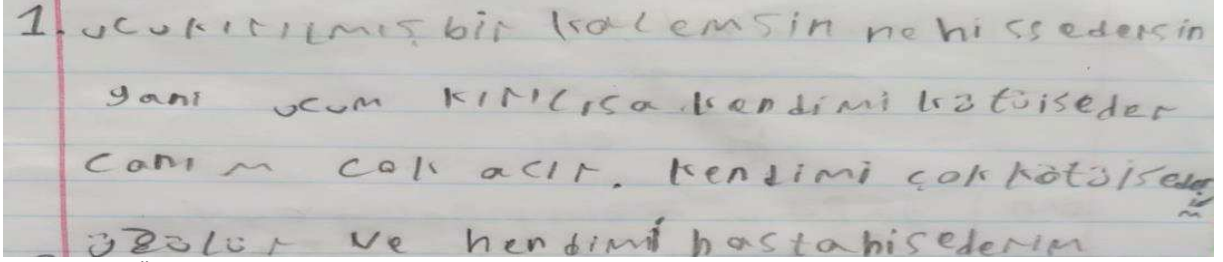 1. ucukırılmış bir kalemsin nehissedersin
yani ucum kırılırsa kendimi kötüiseder
canım cok acır. kendimi çok kötüisederim
üzülür ve kendimi hastahisederim